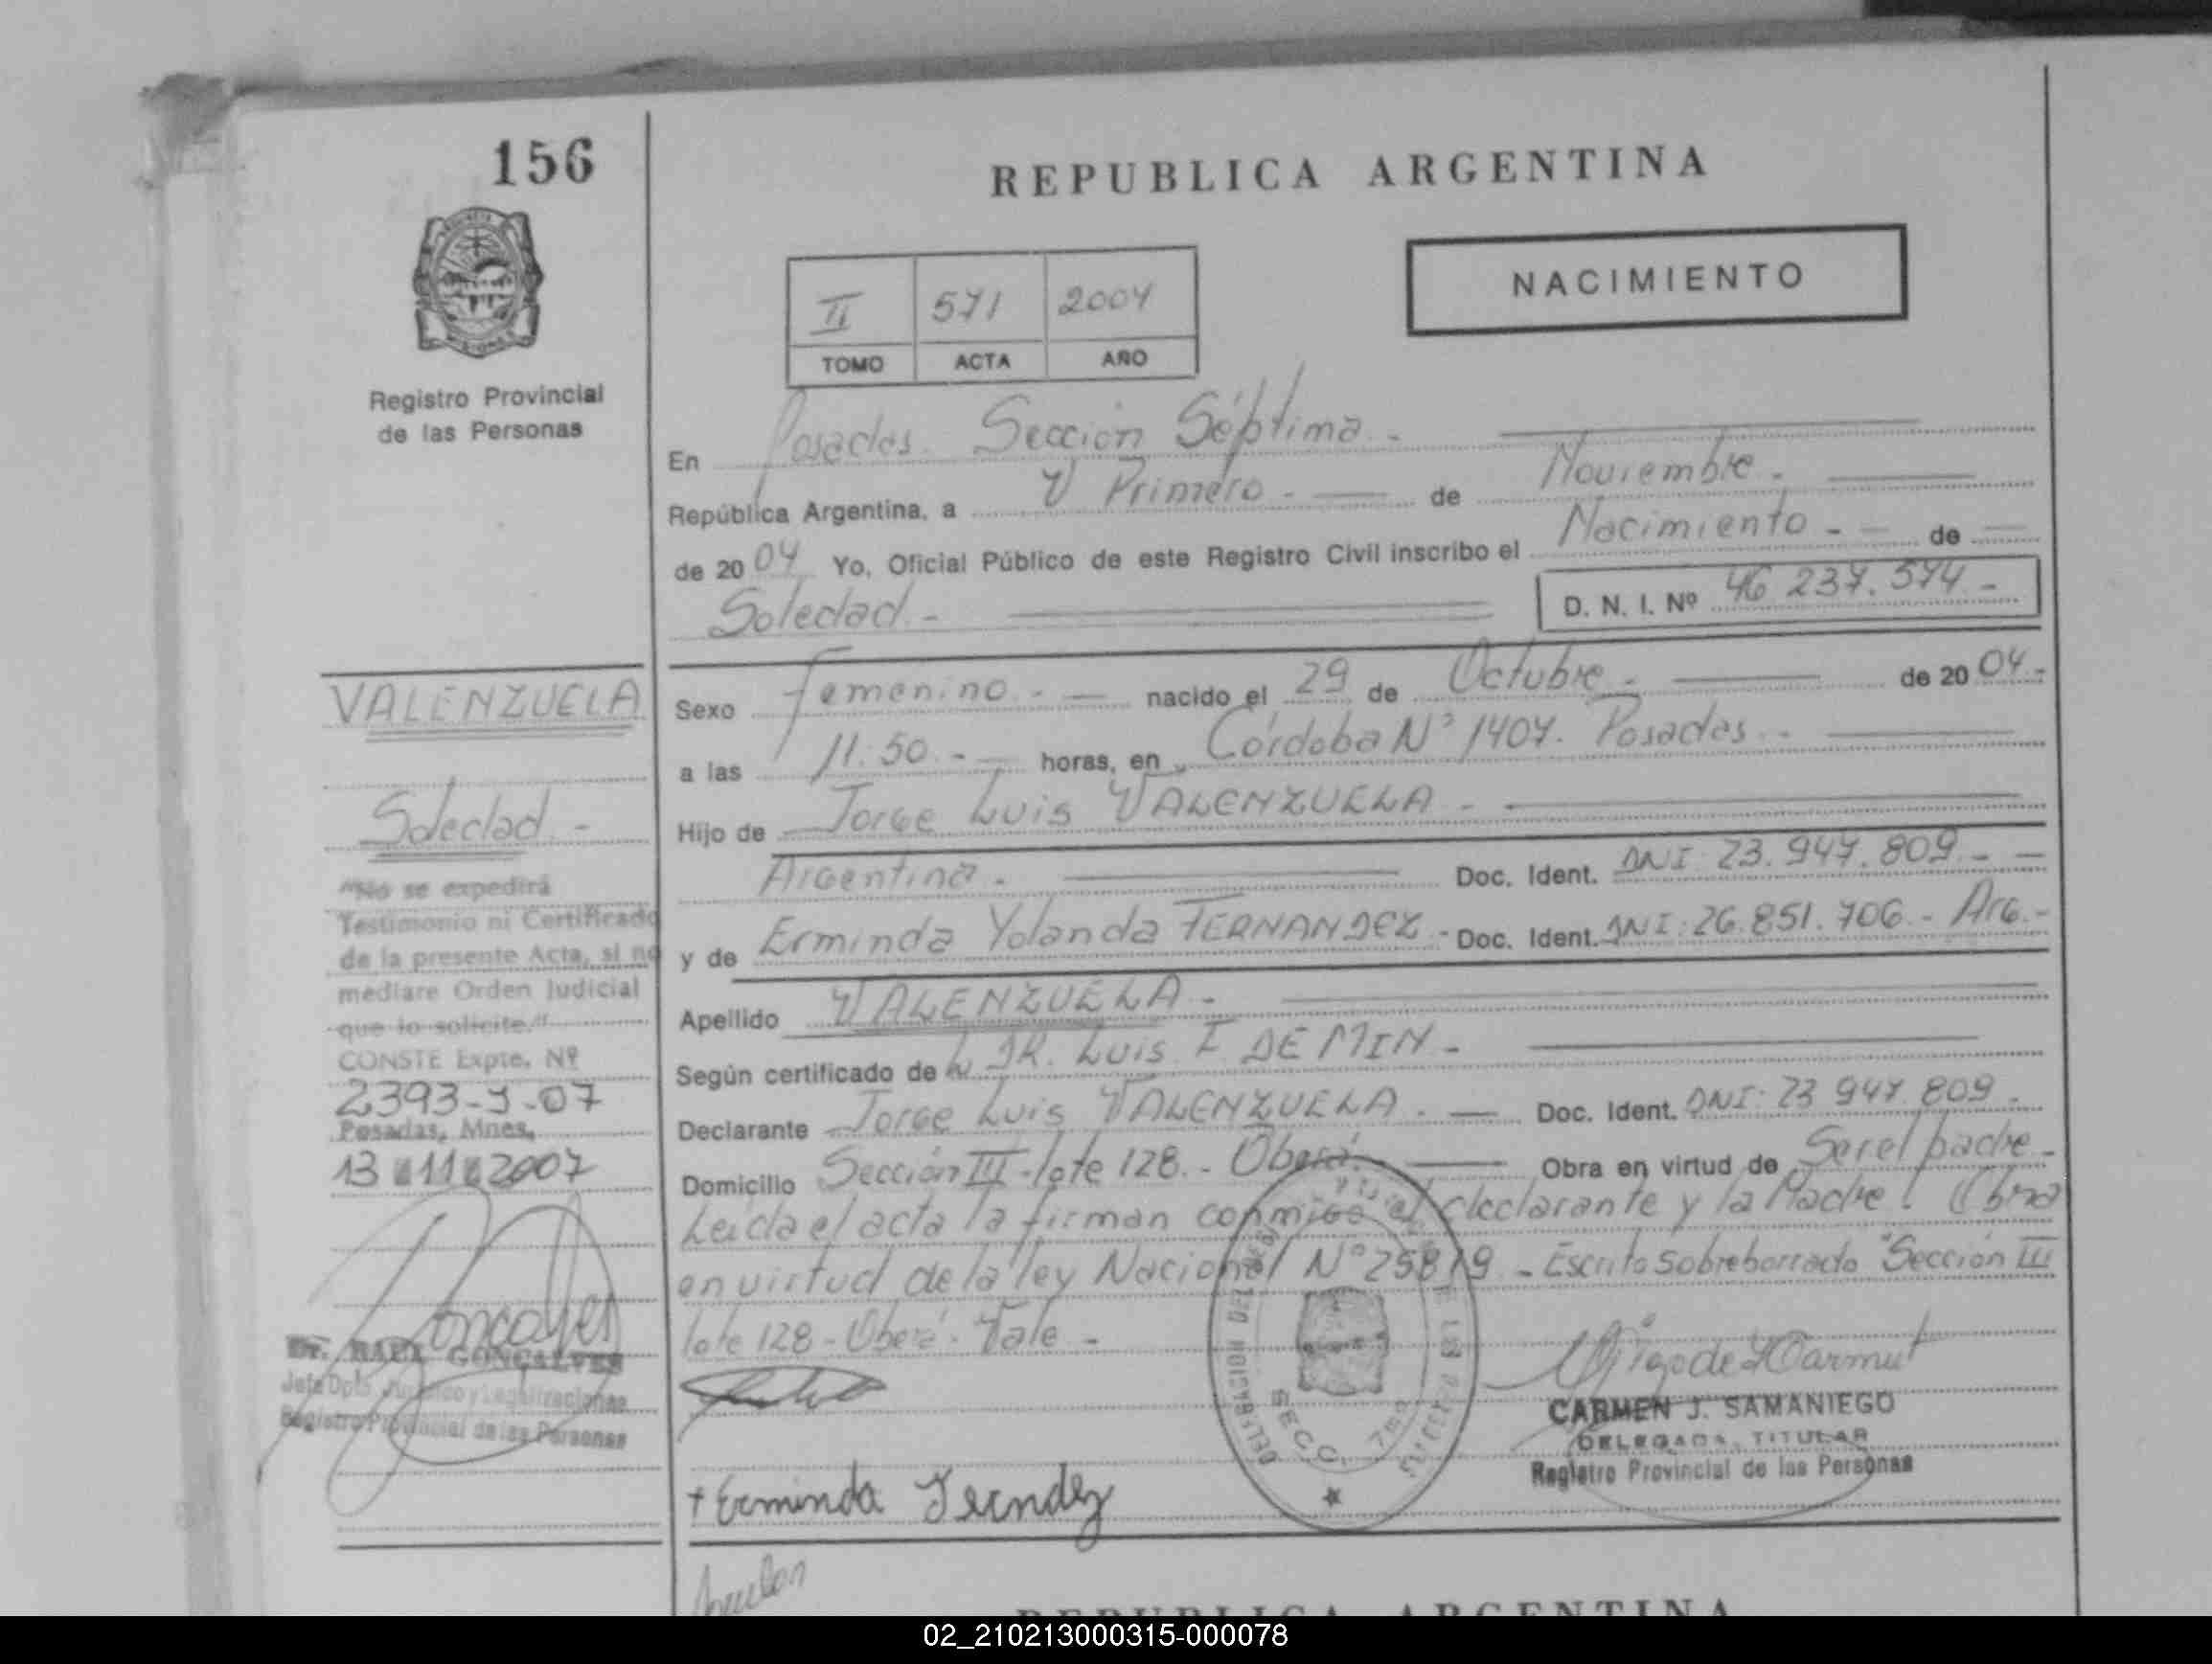 156
REPUBLICA ARGENTINA
NACIMIENTO
II 571 2004
TOMO ACTA AÑO
Registro Provincial
de las Personas
En Posadas. Sección Séptima.-
República Argentina, a Primero.- de Noviembre.-
de 2004 Yo, Oficial Público de este Registro Civil inscribo el Nacimiento - de
Soledad.- D. N. I. Nº 46 237.574.-
VALENZUELA
Soledad.-
"No se expedirá
Testimonio ni Certificado
de la presente Acta, si no
mediare Orden Judicial
que lo solicite."
CONSTE Expte. Nº
2393-J-07
Posadas, Mnes,
13 11 2007
Dr. RAUL GONCALVES
Jefe Dpto. Jurídico y Legalizaciones
Registro Provincial de las Personas
Sexo Femenino.- nacido el 29 de Octubre.- de 2004.-
a las 11:50.- horas, en Córdoba Nº 1407. Posadas.-
Hijo de Jorge Luis VALENZUELA.-
Argentina.- Doc. Ident. DNI: 23.947.809.-
y de Erminda Yolanda FERNANDEZ.- Doc. Ident. DNI: 26.851.706.- Arg.-
Apellido VALENZUELA.-
Según certificado de DR. Luis F. DEMIN.-
Declarante Jorge Luis VALENZUELA.- Doc. Ident. DNI: 23 947 809.-
Domicilio Sección III-lote 128.- Oberá. Obra en virtud de Ser el padre.-
Leída el acta la firman conmigo el declarante y la Madre. Obra
en virtud de la ley Nacional Nº 25819 - Escrito sobreborrado "Sección III
lote 128 - Oberá. Vale -
SECC. 7ma
CARMEN J. SAMANIEGO
DELEGADA TITULAR
Registro Provincial de las Personas
+ Erminda Fernandez
REPUBLICA ARGENTINA
02_210213000315-000078